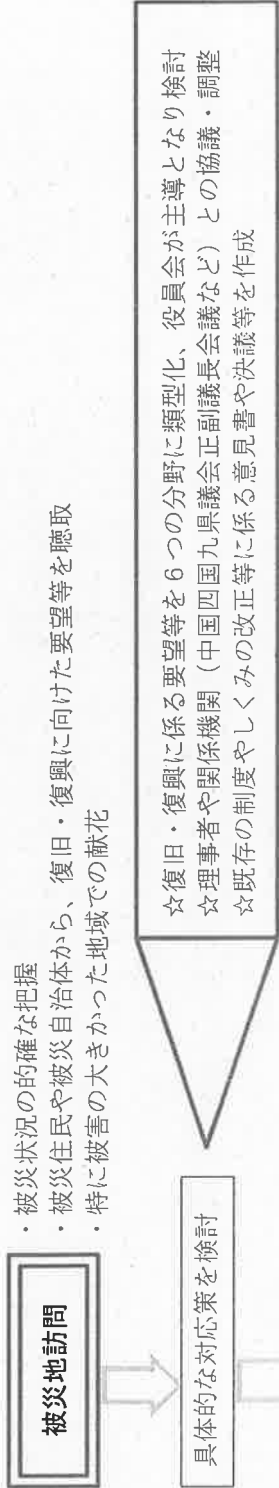 被災地訪問
・被災状況の的確な把握
・被災住民や被災自治体から、復旧・復興に向けた要望等を聴取
・特に被害の大きかった地域での献花
具体的な対応策を検討
☆復旧・復興に係る要望等を6つの分野に類型化、役員会が主導となり検討
☆理事者や関係機関(中国四国九県議会正副議長会議など)との協議・調整
☆既存の制度やしくみの改正等に係る意見書や決議等を作成